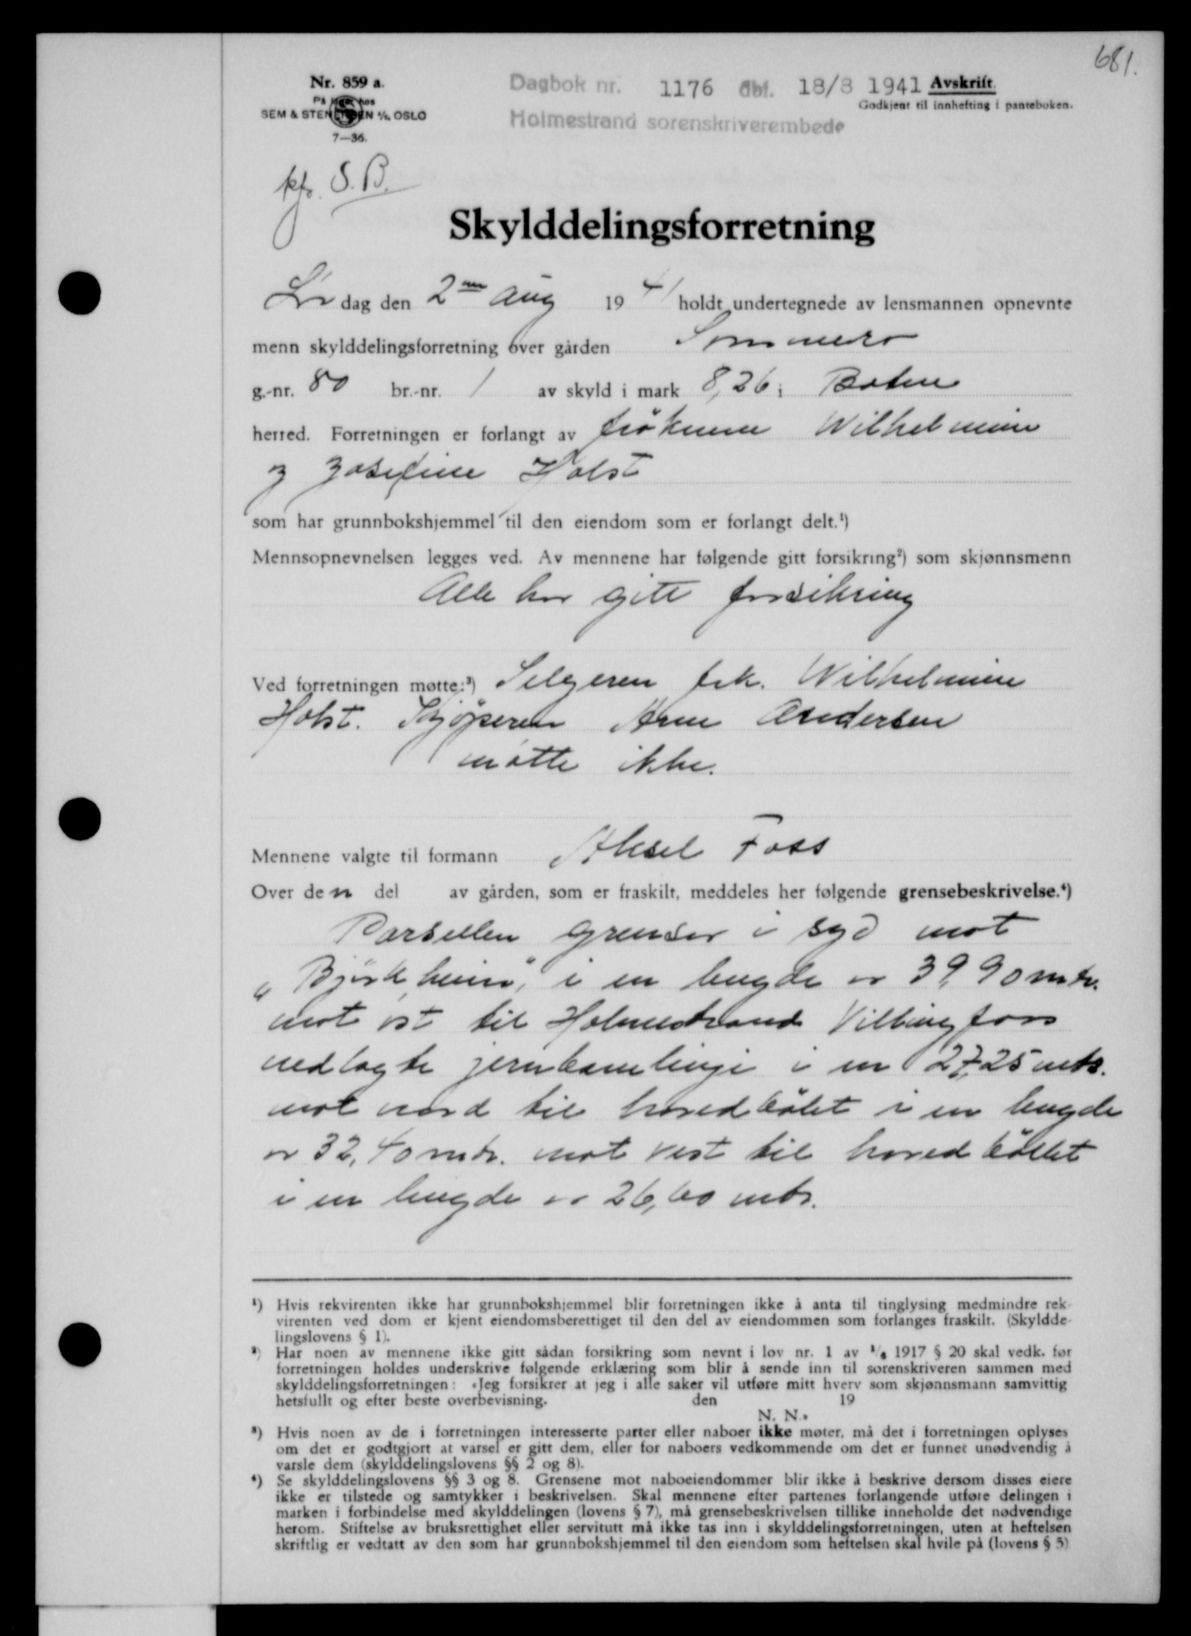 681.
Nr. 859 a.
På lager hos
SEM & STENERSEN A/S, OSLO
7—36.
Dagbok nr. 1176 dbf. 18/8 1941 Avskrift.
Godkjent til innhefting i panteboken.
Holmestrand sorenskriverembede
kfr. S.B.
Skylddelingsforretning
Lør dag den 2den Aug 19 41 holdt undertegnede av lensmannen opnevnte
menn skylddelingsforretning over gården Sommero
g.-nr. 80 br.-nr. 1 av skyld i mark 8,26 i Botne
herred. Forretningen er forlangt av frøknene Wilhelmine
og Josefine Holst
som har grunnbokshjemmel til den eiendom som er forlangt delt.¹)
Mennsopnevnelsen legges ved. Av mennene har følgende gitt forsikring²) som skjønnsmenn
Alle har gitt forsikring
Ved forretningen møtte:³) Selgeren frk. Wilhelmine
Holst. Kjøperen Arne Andersen
møtte ikke.
Mennene valgte til formann Aksel Foss
Over den del av gården, som er fraskilt, meddeles her følgende grensebeskrivelse.⁴)
Parsellen grenser i syd mot
"Bjørkheim", i en lengde av 39,90 mtr.
mot øst til Holmestrand Vittingfoss
nedlagte jernbanelinje i en 27,25 mtr.
mot nord til hovedbølet i en lengde
av 32,40 mtr. mot vest til hovedbøllet
i en lengde av 26,60 mtr.
¹) Hvis rekvirenten ikke har grunnbokshjemmel blir forretningen ikke å anta til tinglysing medmindre rek-
virenten ved dom er kjent eiendomsberettiget til den del av eiendommen som forlanges fraskilt. (Skyldde-
lingslovens § 1).
²) Har noen av mennene ikke gitt sådan forsikring som nevnt i lov nr. 1 av 1/6 1917 § 20 skal vedk. før
forretningen holdes underskrive følgende erklæring som blir å sende inn til sorenskriveren sammen med
skylddelingsforretningen: «Jeg forsikrer at jeg i alle saker vil utføre mitt hverv som skjønnsmann samvittig
hetsfullt og efter beste overbevisning. den 19
N. N.»
³) Hvis noen av de i forretningen interesserte parter eller naboer ikke møter, må det i forretningen oplyses
om det er godtgjort at varsel er gitt dem, eller for naboers vedkommende om det er funnet unødvendig å
varsle dem (skylddelingslovens §§ 2 og 8).
⁴) Se skylddelingslovens §§ 3 og 8. Grensene mot naboeiendommer blir ikke å beskrive dersom disses eiere
ikke er tilstede og samtykker i beskrivelsen. Skal mennene efter partenes forlangende utføre delingen i
marken i forbindelse med skylddelingen (lovens § 7), må grensebeskrivelsen tillike inneholde det nødvendige
herom. Stiftelse av bruksrettighet eller servitutt må ikke tas inn i skylddelingsforretningen, uten at heftelsen
skriftlig er vedtatt av den som har grunnbokshjemmel til den eiendom som heftelsen skal hvile på (lovens § 5)